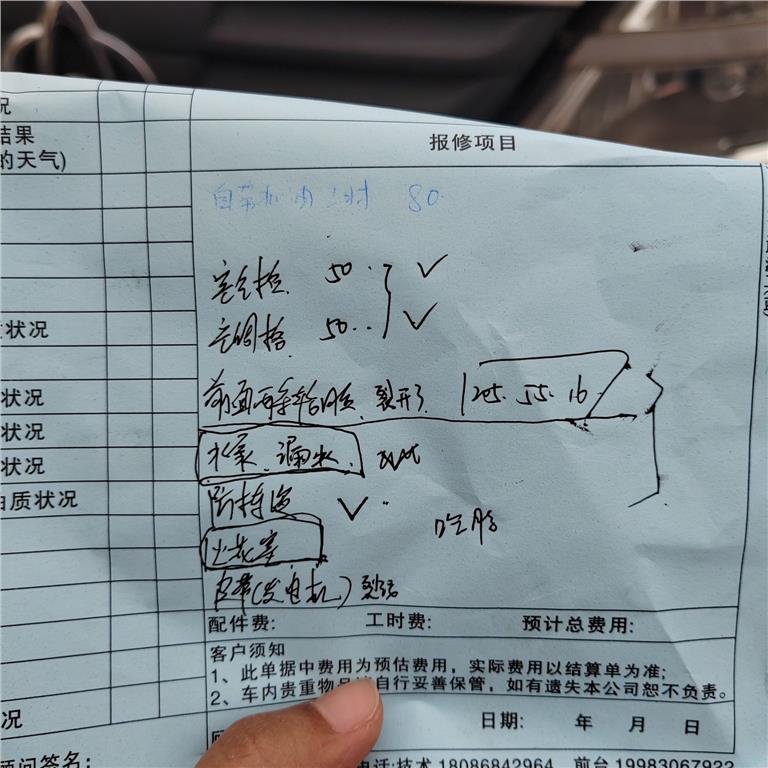 况
结果
的天气)
报修项目
自带机油工时 80.
安全检. 50. ✓
空调检. 50.. ✓
前面两条轮胎. 裂开了 205.55.16
状况
状况
状况
水泵. 漏水.
状况
由质状况
防持液 ✓
火花塞
吃胎
皮带(发电机)裂活
配件费: 工时费: 预计总费用:
客户须知
1、此单据中费用为预估费用，实际费用以结算单为准;
2、车内贵重物品 自行妥善保管，如有遗失本公司恕不负责。
况
日期: 年 月 日
顾问签名:
电话:技术 18086842964 前台 19983067922